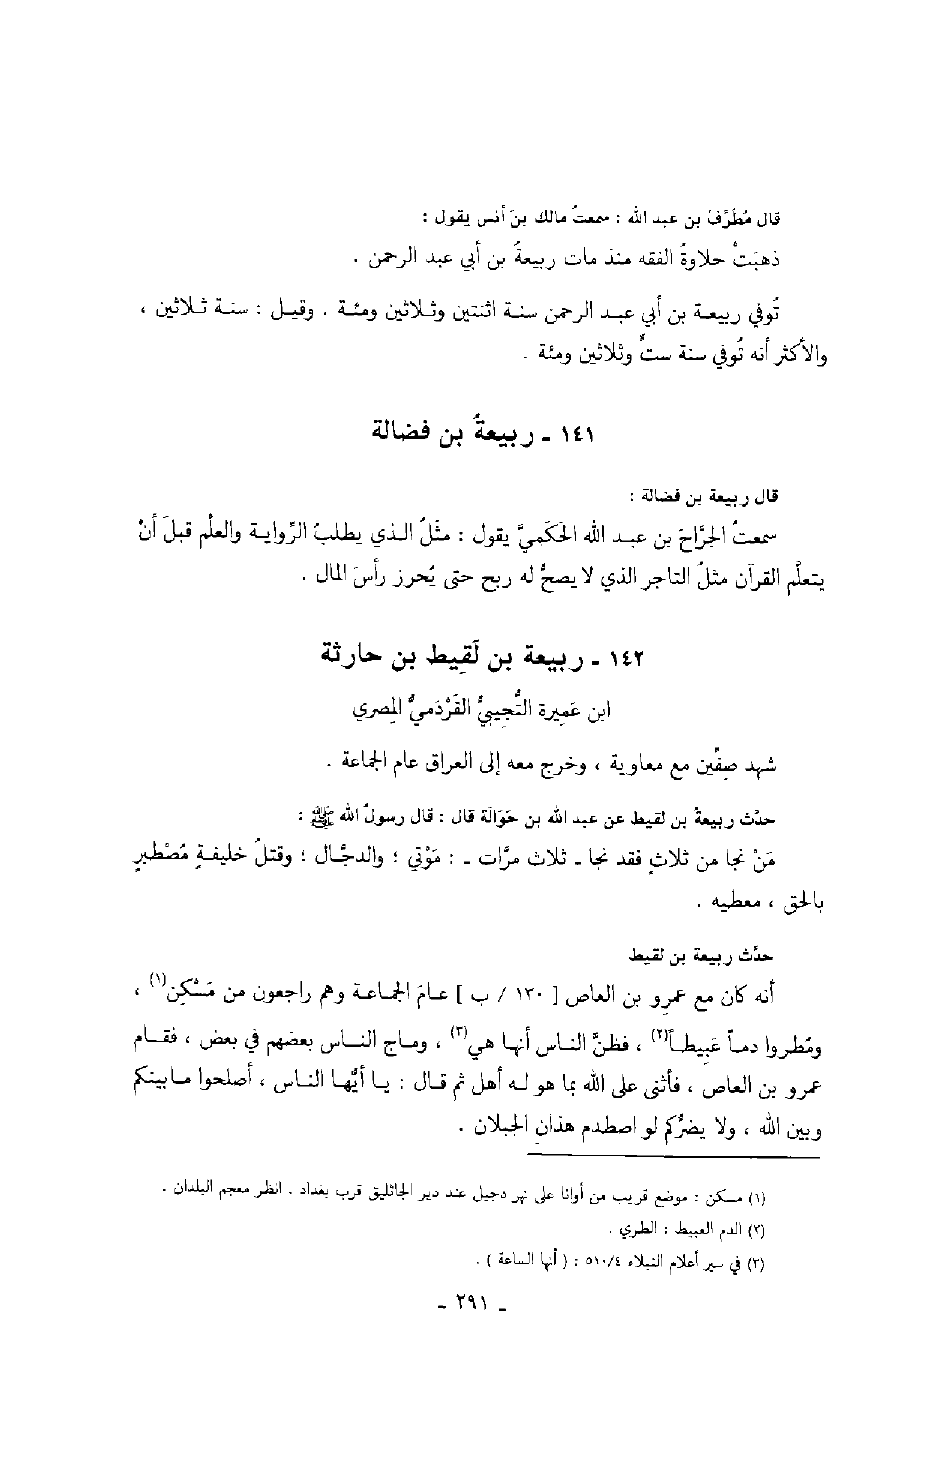 قال مُطَرِّف بن عبد الله : سمعتُ مالك بنَ أنس يقول :
ذهبَتْ حلاوةُ الفقه منذ مات ربيعةُ بن أبي عبد الرحمن .
تُوفي ربيعة بن أبي عبد الرحمن سنة اثنتين وثلاثين ومئة . وقيل : سنة ثلاثين ،
والأكثر أنه تُوفي سنة ستٍّ وثلاثين ومئة .
١٤١ ـ ربيعةُ بن فضالة
قال ربيعة بن فضالة :
سمعتُ الجرَّاحَ بن عبد الله الحَكَميَّ يقول : مثَلُ الذي يطلبُ الرِّواية والعلْم قبلَ أنْ
يتعلَّم القرآن مثلُ التاجر الذي لا يصحُّ له ربح حتى يُحرز رأسَ المال .
١٤٢ ـ ربيعة بن لَقِيط بن حارثة
ابن عَمِيرة التُّجِيبيُّ القَرْدَميُّ المِصري
شهد صِفِّين مع معاوية ، وخرج معه إلى العراق عام الجماعة .
حدَّث ربيعةُ بن لقيط عن عبد الله بن حَوَالَة قال : قال رسولُ الله ﷺ :
مَنْ نجا من ثلاثٍ فقد نجا ـ ثلاث مرَّات ـ : مَوْتي ؛ والدجَّال ؛ وقتلُ خليفةٍ مُصْطَبِرٍ
بالحق ، معطيه .
حدَّث ربيعة بن لقيط
أنه كان مع عمرو بن العاص [ ١٣٠ / ب ] عامَ الجماعة وهم راجعون من مَسْكِن(١) ،
ومُطروا دماً عَبِيطاً(٢) ، فظنَّ الناس أنها هي(٣) ، وماج الناس بعضهم في بعض ، فقام
عمرو بن العاص ، فأثنى على الله بما هو له أهل ثم قال : يا أيُّها الناس ، أصلحوا مابينكم
وبين الله ، ولا يضرُّكم لو اصطدم هذانِ الجبلان .
(١) مسكن : موضع قريب من أوانا على نهر دجيل عند دير الجاثليق قرب بغداد . انظر معجم البلدان .
(٢) الدم العبيط : الطري .
(٣) في سير أعلام النبلاء ٥١٠/٤ : ( أنها الساعة ) .
ـ ٢٩١ ـ